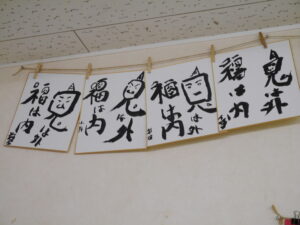 鬼は外
福は内
鬼は外
福は内
鬼は外
福は内
鬼は外
福は内